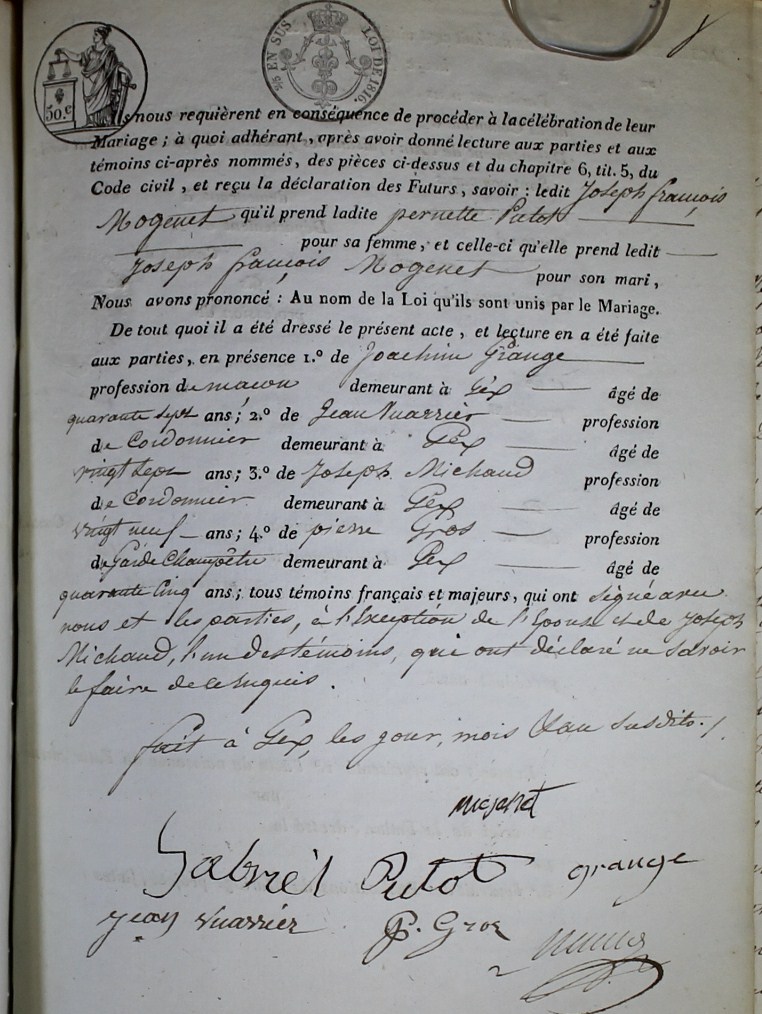 50.c
EN SUS LOI DE 1816.
Ils nous requièrent en conséquence de procéder à la célébration de leur
Mariage ; à quoi adhérant, après avoir donné lecture aux parties et aux
témoins ci-après nommés, des pièces ci-dessus et du chapitre 6, tit. 5, du
Code civil, et reçu la déclaration des Futurs, savoir : ledit Joseph françois
Mogenet qu'il prend ladite pernette Putot
pour sa femme, et celle-ci qu'elle prend ledit
Joseph françois Mogenet pour son mari,
Nous avons prononcé : Au nom de la Loi qu'ils sont unis par le Mariage.
De tout quoi il a été dressé le présent acte, et lecture en a été faite
aux parties, en présence 1.º de Joachim Grange
profession de maçon demeurant à Gex âgé de
quarante sept ans; 2.º de Jean Vuarrier profession
de Cordonnier demeurant à Gex âgé de
vingt sept ans; 3.º de Joseph Michaud profession
de Cordonnier demeurant à Gex âgé de
vingt neuf ans; 4.º de pierre Gros profession
de Garde Champêtre demeurant à Gex âgé de
quarante cinq ans; tous témoins français et majeurs, qui ont signé avec
nous et les parties, à l'Exception de l'Epouse et de Joseph
Michaud, l'un des témoins, qui ont déclaré ne savoir
le faire de ce Enquis.
fait à Gex, les jour, mois & an susdits./
mogenet
Gabriel Putot grange
jean vuarrier P. Gros